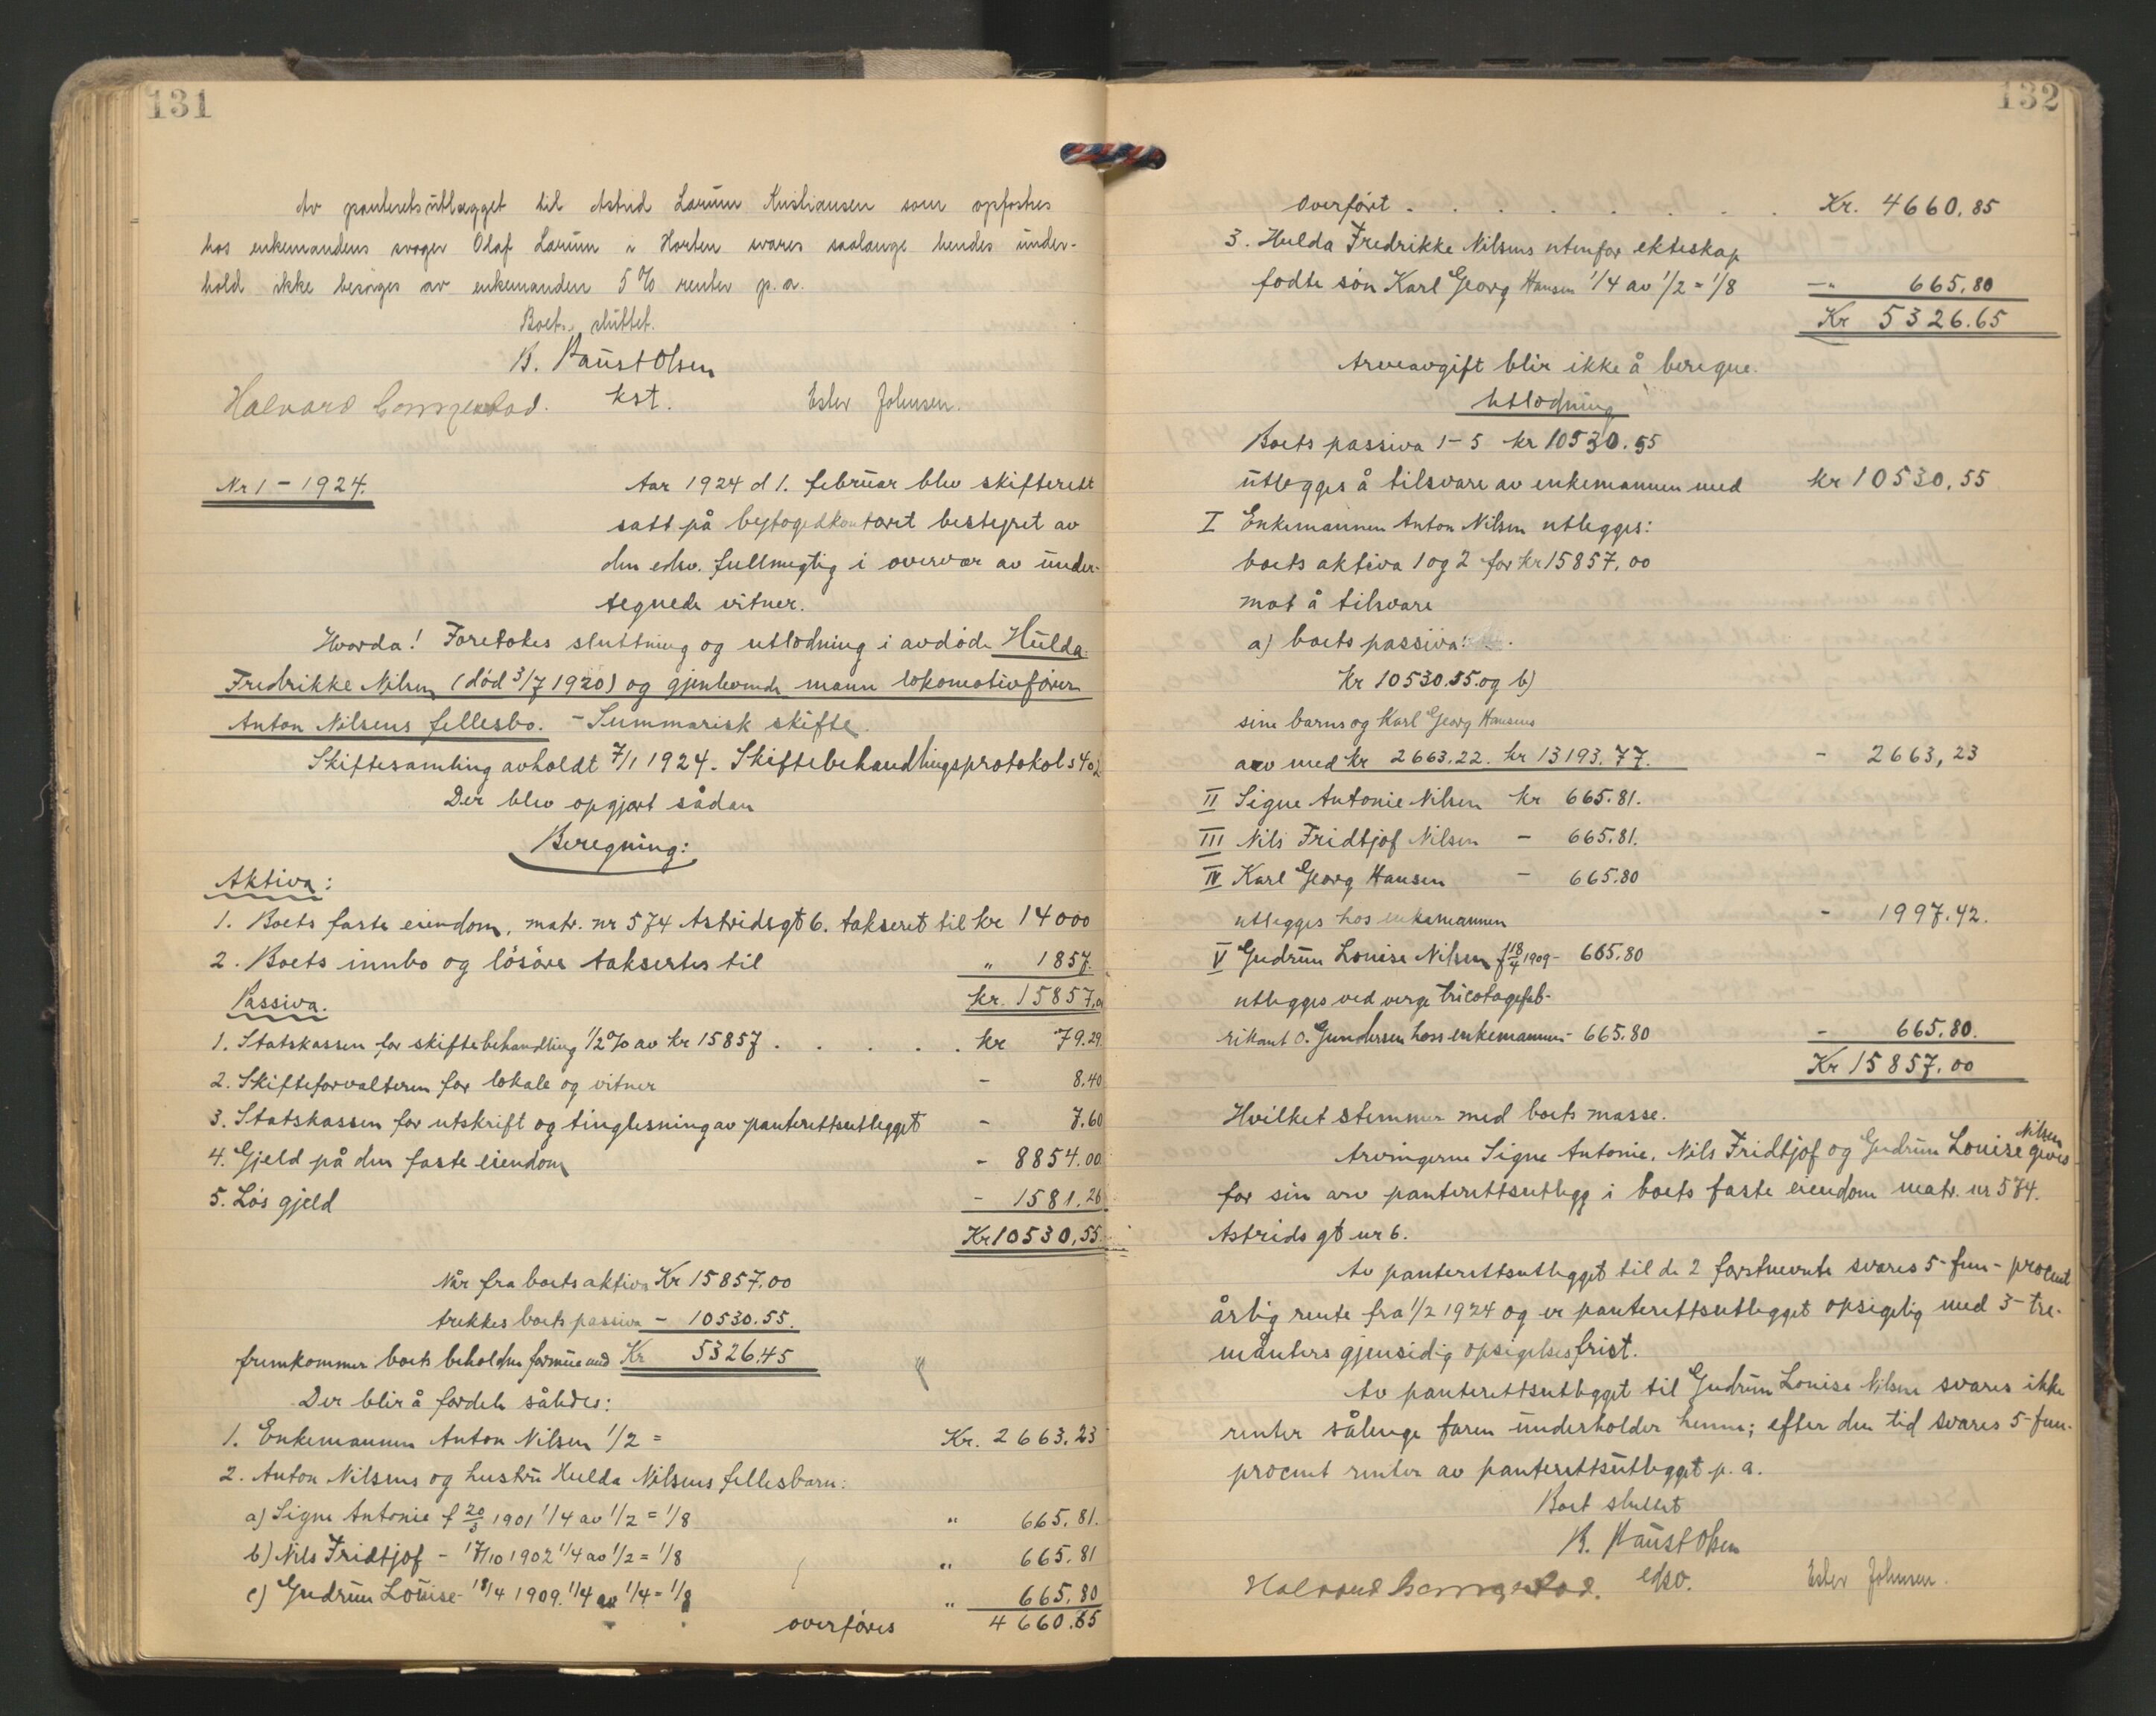 131
Av panteretsutlægget til Astrid Lærum Kristiansen som opfostres
hos enkemandens svoger Olaf Lærum i Horten svares saalange hendes under-
hold ikke besørges av enkemanden 5% renter p.a.
Boet sluttet.
B. Paust Olsen
kst.
Halvard
Ester Johnsen.
Nr 1 - 1924.
Aar 1924 d 1. februar blev skifterett
satt på byfogedkontoret bestyret av
den edsv. fullmegtig i overvær av under-
tegnede vitner.
Hvorda! Foretokes sluttning og utlodning i avdöde Hulda
Fredrikke Nilsen (död 3/7 1920) og gjenlevende mann lokomotivförer
Anton Nilsens fellesbo. - Summarisk skifte.
Skiftesamling avholdt 7/1 1924. Skiftebehandlingsprotokol s 402
Der blev opgjort sådan
Beregning:
Aktiva:
1. Boets faste eiendom, matr. nr 574 Astridsgt 6. takseret til kr 14000
2. Boets innbo og lösöre taksertes til " 1857.
kr. 15857,00
Passiva.
1. Statskassen for skiftebehandling 1/2% av kr 15857 . . . . . . kr 79.29
2. Skifteforvalteren for lokale og vitner - 8.40
3. Statskassen for utskrift og tinglesning av panterettsutlegget - 7.60
4. Gjeld på den faste eiendom - 8854.00
5. Lös gjeld - 1581.26
Kr 10530,55.
Når fra boets aktiva Kr 15857.00
trekkes boets passiva - 10530.55.
fremkommer boets beholdne formue med Kr 5326.45
Der blir å fordele således:
1. Enkemannen Anton Nilsen 1/2 = Kr. 2663.23
2. Anton Nilsens og hustru Hulda Nilsens fellesbarn:
a) Signe Antonie f 20/3 1901 1/4 av 1/2 = 1/8 " 665.81.
b) Nils Fridtjof - 17/10 1902 1/4 av 1/2 = 1/8 " 665.81
c) Gudrun Louise - 18/4 1909. 1/4 av 1/4 = 1/8 " 665.80
overföres 4660.85
132
Overfört . . . . . . . . Kr. 4660.85
3. Hulda Fredrikke Nilsens utenfor ekteskap
födte sön Karl Georg Hansen 1/4 av 1/2 = 1/8 -" 665.80
Kr 5326.65
Arveavgift blir ikke å beregne.
Utlodning
Boets passiva 1-5 kr 10530.55
utlegges å tilsvare av enkemannen med kr 10530,55
I Enkemannen Anton Nilsen utlegges:
boets aktiva 1 og 2 for kr 15857.00
mot å tilsvare
a) boets passiva:
Kr 10530.55. og b)
sine barns og Karl Georg Hansens
arv med kr 2663.22. kr 13193.77. - 2663,23
II Signe Antonie Nilsen kr 665.81.
III Nils Fridtjof Nilsen - 665.81.
IV Karl Georg Hansen - 665.80
utlegges hos enkemannen - 1997.42.
V Gudrun Louise Nilsen f 18/4 1909 - 665.80
utlegges ved verge tricotagefab-
rikant O. Gundersen hoss enkemannen - 665.80 - 665.80.
Kr 15857.00
Hvilket stemmer med boets masse.
Arvingerne Signe Antonie, Nils Fridtjof og Gudrun Louise Nilsen gives
for sin arv panterettsutlegg i boets faste eiendom matr. nr 574.
Astrids gt nr 6.
Av panterettsutlegget til de 2 förstnevnte svares 5-fem- procent
årlig rente fra 1/2 1924 og er panterettsutlegget opsigelig med 3-tre-
måneders gjensidig opsigelsesfrist.
Av panterettsutlegget til Gudrun Louise Nilsen svares ikke
renter sålenge faren underholder henne; efter den tid svares 5-fem-
procent renter av panterettsutlegget p.a.
Boet sluttet
B. Paust Olsen
edsv.
Halvard
Ester Johnsen.